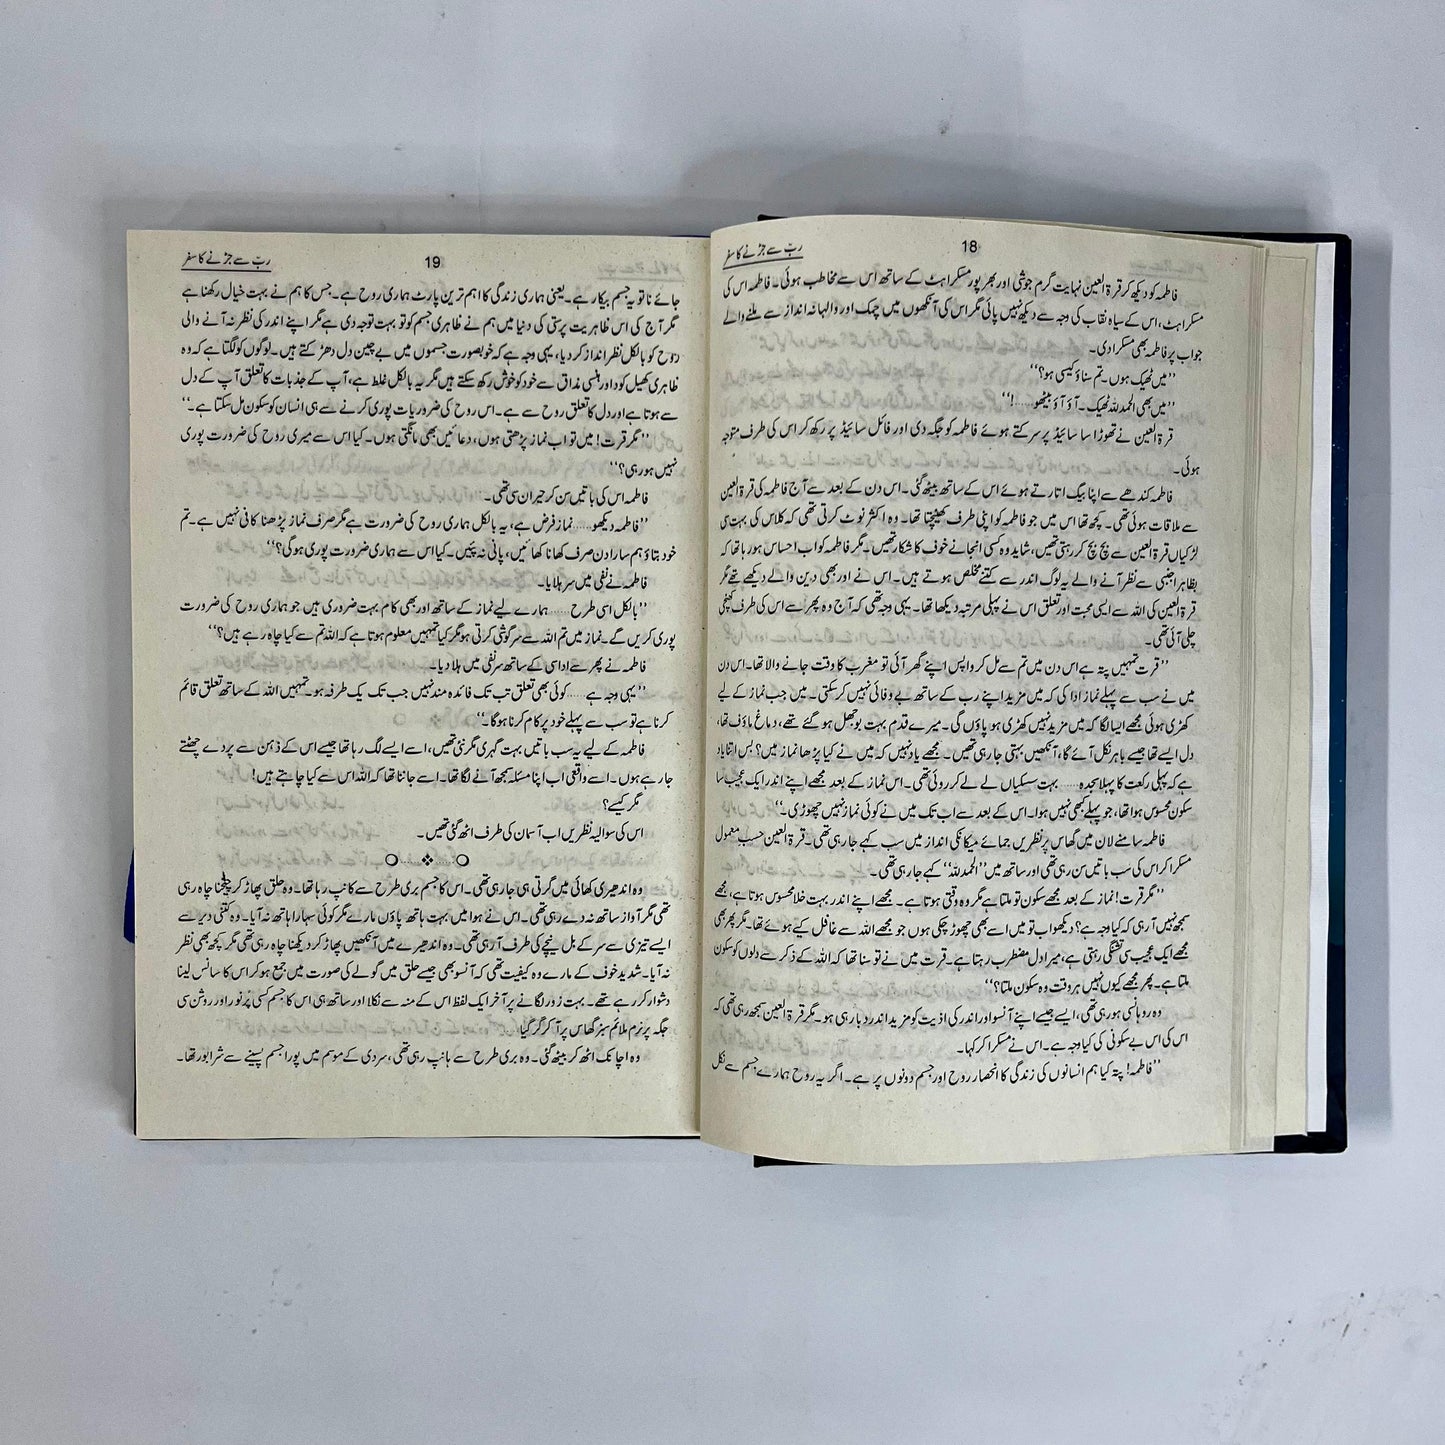 18
ربّ سے جڑنے کا سفر
فاطمہ کو دیکھ کر قرۃ العین نہایت گرم جوشی اور بھر پور مسکراہٹ کے ساتھ اس سے مخاطب ہوئی۔ فاطمہ اس کی
مسکراہٹ، اس کے سیاہ نقاب کی وجہ سے دیکھ نہیں پائی مگر اس کی آنکھوں میں چمک اور والہانہ انداز سے ملنے والے
جواب پر فاطمہ بھی مسکرا دی۔
’’میں ٹھیک ہوں۔ تم سناؤ کیسی ہو؟‘‘
’’میں بھی الحمدللہ ٹھیک۔ آؤ آؤ بیٹھو......!‘‘
قرۃ العین نے تھوڑا سا سائیڈ پر سرکتے ہوئے فاطمہ کو جگہ دی اور فائل سائیڈ پر رکھ کر اس کی طرف متوجہ
ہوئی۔
فاطمہ کندھے سے اپنا بیگ اتارتے ہوئے اس کے ساتھ بیٹھ گئی۔ اس دن کے بعد سے آج فاطمہ کی قرۃ العین
سے ملاقات ہوئی تھی۔ کچھ تھا اس میں جو فاطمہ کو اپنی طرف کھینچتا تھا۔ وہ اکثر نوٹ کرتی تھی کہ کلاس کی بہت سی
لڑکیاں قرۃ العین سے بچ بچ کر رہتی تھیں، شاید وہ کسی انجانے خوف کا شکار تھیں۔ مگر فاطمہ کو اب احساس ہو رہا تھا کہ
بظاہر اجنبی سے نظر آنے والے یہ لوگ اندر سے کتنے مخلص ہوتے ہیں۔ اس نے اور بھی دین والے دیکھے تھے مگر
قرۃ العین کی اللہ سے ایسی محبت اور تعلق اس نے پہلی مرتبہ دیکھا تھا۔ یہی وجہ تھی کہ آج وہ پھر سے اس کی طرف کھنچی
چلی آئی تھی۔
’’قرت تمہیں پتہ ہے اس دن میں تم سے مل کر واپس اپنے گھر آئی تو مغرب کا وقت جانے والا تھا۔ اس دن
میں نے سب سے پہلے نماز ادا کی کہ میں مزید اپنے رب کے ساتھ بے وفائی نہیں کر سکتی۔ میں جب نماز کے لیے
کھڑی ہوئی مجھے ایسا لگا کہ میں مزید نہیں کھڑی ہو پاؤں گی۔ میرے قدم بہت بوجھل ہو گئے تھے، دماغ ماؤف تھا،
دل ایسے تھا جیسے باہر نکل آئے گا، آنکھیں بہتی جا رہی تھیں۔ مجھے یاد نہیں کہ میں نے کیا پڑھا نماز میں؟ بس اتنا یاد
ہے کہ پہلی رکعت کا پہلا سجدہ...... بہت سسکیاں لے لے کر روئی تھی۔ اس نماز کے بعد مجھے اپنے اندر ایک عجیب سا
سکون محسوس ہوا تھا، جو پہلے کبھی نہیں ہوا۔ اس کے بعد سے اب تک میں نے کوئی نماز نہیں چھوڑی۔‘‘
فاطمہ سامنے لان میں گھاس پر نظریں جمائے میکانکی انداز میں سب کہے جا رہی تھی۔ قرۃ العین حسب معمول
مسکرا کر اس کی سب باتیں سن رہی تھی اور ساتھ میں ’’الحمدللہ‘‘ کہے جا رہی تھی۔
’’مگر قرت! نماز کے بعد مجھے سکون تو ملتا ہے مگر وہ وقتی ہوتا ہے۔ مجھے اپنے اندر بہت خلا محسوس ہوتا ہے، مجھے
سمجھ نہیں آ رہی کہ کیا وجہ ہے؟ دیکھو اب تو میں اسے بھی چھوڑ چکی ہوں جو مجھے اللہ سے غافل کیے ہوئے تھا۔ مگر پھر بھی
مجھے ایک عجیب سی تشنگی رہتی ہے، میرا دل مضطرب رہتا ہے۔ قرت میں نے تو سنا تھا کہ اللہ کے ذکر سے دلوں کو سکون
ملتا ہے۔ پھر مجھے کیوں نہیں ہر وقت وہ سکون ملتا؟‘‘
وہ روہانسی ہو رہی تھی، ایسے جیسے اپنے آنسو اور اندر کی اذیت کو مزید اندر دبا رہی ہو۔ مگر قرۃ العین سمجھ رہی تھی کہ
اس کی اس بے سکونی کی کیا وجہ ہے۔ اس نے مسکرا کر کہا۔
’’فاطمہ! پتہ کیا ہم انسانوں کی زندگی کا انحصار روح اور جسم دونوں پر ہے۔ اگر یہ روح ہمارے جسم سے نکل
19
ربّ سے جڑنے کا سفر
جائے نا تو یہ جسم بیکار ہے۔ یعنی ہماری زندگی کا اہم ترین پارٹ ہماری روح ہے۔ جس کا ہم نے بہت خیال رکھنا ہے
مگر آج کی اس ظاہریت پرستی کی دنیا میں ہم نے ظاہری جسم کو تو بہت توجہ دی ہے مگر اپنے اندر کی نظر نہ آنے والی
روح کو بالکل نظر انداز کر دیا، یہی وجہ ہے کہ خوبصورت جسموں میں بے چین دل دھڑکتے ہیں۔ لوگوں کو لگتا ہے کہ وہ
ظاہری کھیل کود اور ہنسی مذاق سے خود کو خوش رکھ سکتے ہیں مگر یہ بالکل غلط ہے، آپ کے جذبات کا تعلق آپ کے دل
سے ہوتا ہے اور دل کا تعلق روح سے ہے۔ اس روح کی ضروریات پوری کرنے سے ہی انسان کو سکون مل سکتا ہے۔‘‘
’’مگر قرت! میں تو اب نماز پڑھتی ہوں، دعائیں بھی مانگتی ہوں۔ کیا اس سے میری روح کی ضرورت پوری
نہیں ہو رہی؟‘‘
فاطمہ اس کی باتیں سن کر حیران سی تھی۔
’’فاطمہ دیکھو...... نماز فرض ہے، یہ بالکل ہماری روح کی ضرورت ہے مگر صرف نماز پڑھنا کافی نہیں ہے۔ تم
خود بتاؤ ہم سارا دن صرف کھانا کھائیں، پانی نہ پئیں۔ کیا اس سے ہماری ضرورت پوری ہو گی؟‘‘
فاطمہ نے نفی میں سر ہلایا۔
’’بالکل اسی طرح...... ہمارے لیے نماز کے ساتھ اور بھی کام بہت ضروری ہیں جو ہماری روح کی ضرورت
پوری کریں گے۔ نماز میں تم اللہ سے سرگوشی کرتی ہو مگر کیا تمہیں معلوم ہوتا ہے کہ اللہ تم سے کیا چاہ رہے ہیں؟‘‘
فاطمہ نے پھر سے اداسی کے ساتھ سر نفی میں ہلا دیا۔
’’یہی وجہ ہے...... کوئی بھی تعلق تب تک فائدہ مند نہیں جب تک یک طرفہ ہو۔ تمہیں اللہ کے ساتھ تعلق قائم
کرنا ہے تو سب سے پہلے خود پر کام کرنا ہو گا۔‘‘
فاطمہ کے لیے یہ سب باتیں بہت گہری مگر نئی تھیں، اسے ایسے لگ رہا تھا جیسے اس کے ذہن سے پردے چھٹتے
جا رہے ہوں۔ اسے واقعی اب اپنا مسئلہ سمجھ آنے لگا تھا۔ اسے جاننا تھا کہ اللہ اس سے کیا چاہتے ہیں!
مگر کیسے؟
اس کی سوالیہ نظریں اب آسمان کی طرف اٹھ گئی تھیں۔
○......❖......○
وہ اندھیری کھائی میں گرتی ہی جا رہی تھی۔ اس کا جسم بری طرح سے کانپ رہا تھا۔ وہ حلق پھاڑ کر چیخنا چاہ رہی
تھی مگر آواز ساتھ نہ دے رہی تھی۔ اس نے ہوا میں بہت ہاتھ پاؤں مارے مگر کوئی سہارا ہاتھ نہ آیا۔ وہ کتنی دیر سے
ایسے تیزی سے سر کے بل نیچے کی طرف آ رہی تھی۔ وہ اندھیرے میں آنکھیں پھاڑ کر دیکھنا چاہ رہی تھی مگر کچھ بھی نظر
نہ آیا۔ شدید خوف کے مارے وہ کیفیت تھی کہ آنسو بھی جیسے حلق میں گولے کی صورت میں جمع ہو کر اس کا سانس لینا
دشوار کر رہے تھے۔ بہت زور لگانے پر آخر ایک لفظ اس کے منہ سے نکلا اور ساتھ ہی اس کا جسم کسی پُر نور اور روشن سی
جگہ پر نرم ملائم سبز گھاس پر آ کر گر گیا
وہ اچانک اٹھ کر بیٹھ گئی۔ وہ بری طرح سے ہانپ رہی تھی، سردی کے موسم میں پورا جسم پسینے سے شرابور تھا۔